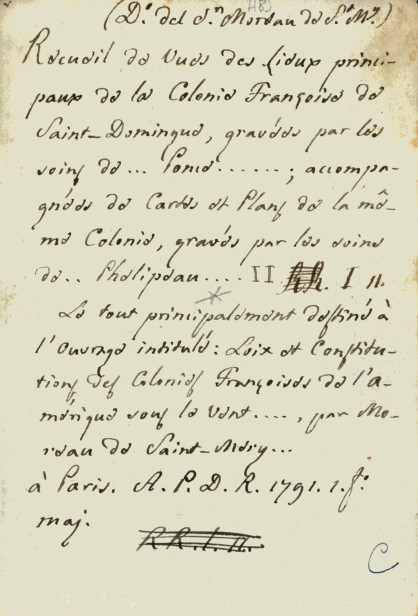 (D.º del S.ʳ Moreau de S.ᵗ Mʸ.)
Recueil de Vues des Lieux princi-
paux de la Colonie Françoise de
Saint-Domingue, gravées par les
soins de ... Ponce ......; accompa-
gnées de Cartes et Plans de la mê-
me Colonie, gravés par les soins
de .. Phelipeau .... II I 11.
Le tout principalement destiné à
l'Ouvrage intitulé: Loix et Constitu-
tions des Colonies Françoises de l'A-
mérique sous le Vent ...., par Mo-
reau de Saint-Méry ...
à Paris. A. P. D. R. 1791. 1. fº.
maj.
RR. 1. 11.
C